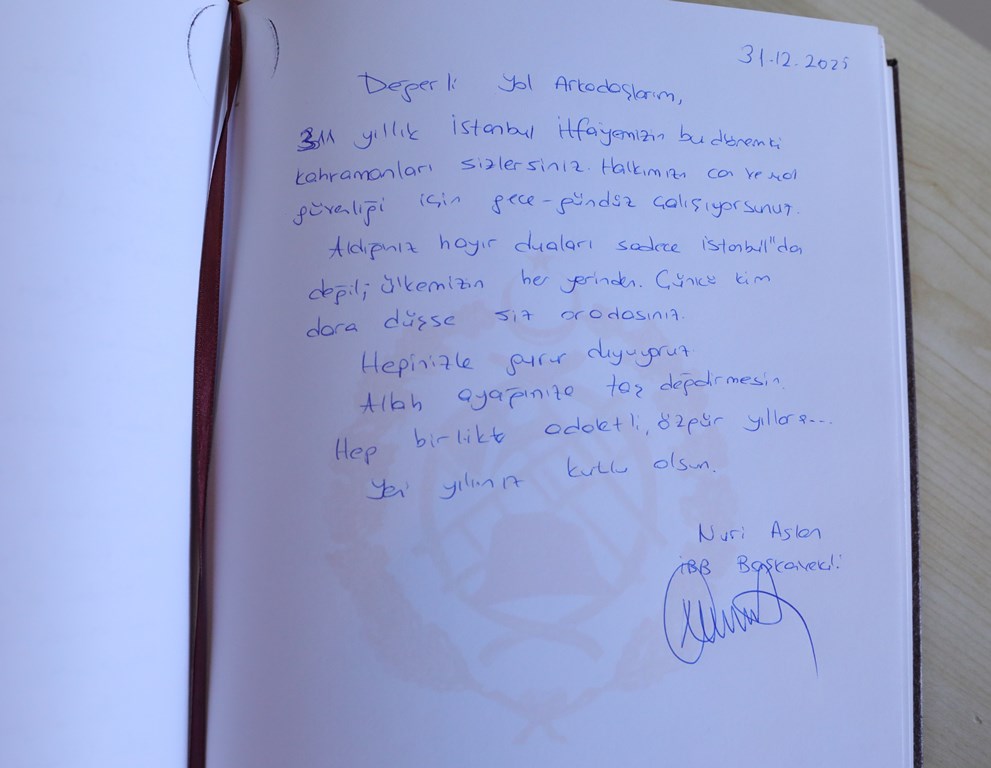 31.12.2025
Değerli Yol Arkadaşlarım,
311 yıllık İstanbul İtfaiyemizin bu dönemki
kahramanları sizlersiniz. Halkımızın can ve mal
güvenliği için gece-gündüz çalışıyorsunuz.
Aldığınız hayır duaları sadece İstanbul"da
değil; ülkemizin her yerinden. Çünkü kim
dara düşse siz oradasınız.
Hepinizle gurur duyuyoruz.
Allah ayağınıza taş değdirmesin.
Hep birlikte adaletli, özgür yıllara...
Yeni yılınız kutlu olsun.
Nuri Aslan
İBB Başkanvekili